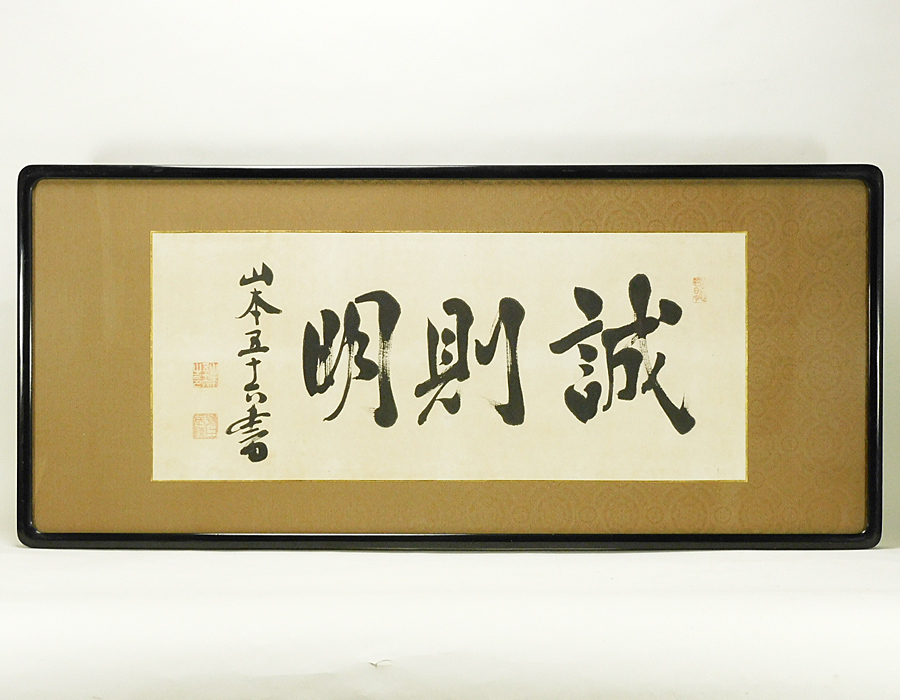 誠則明
山本五十六書